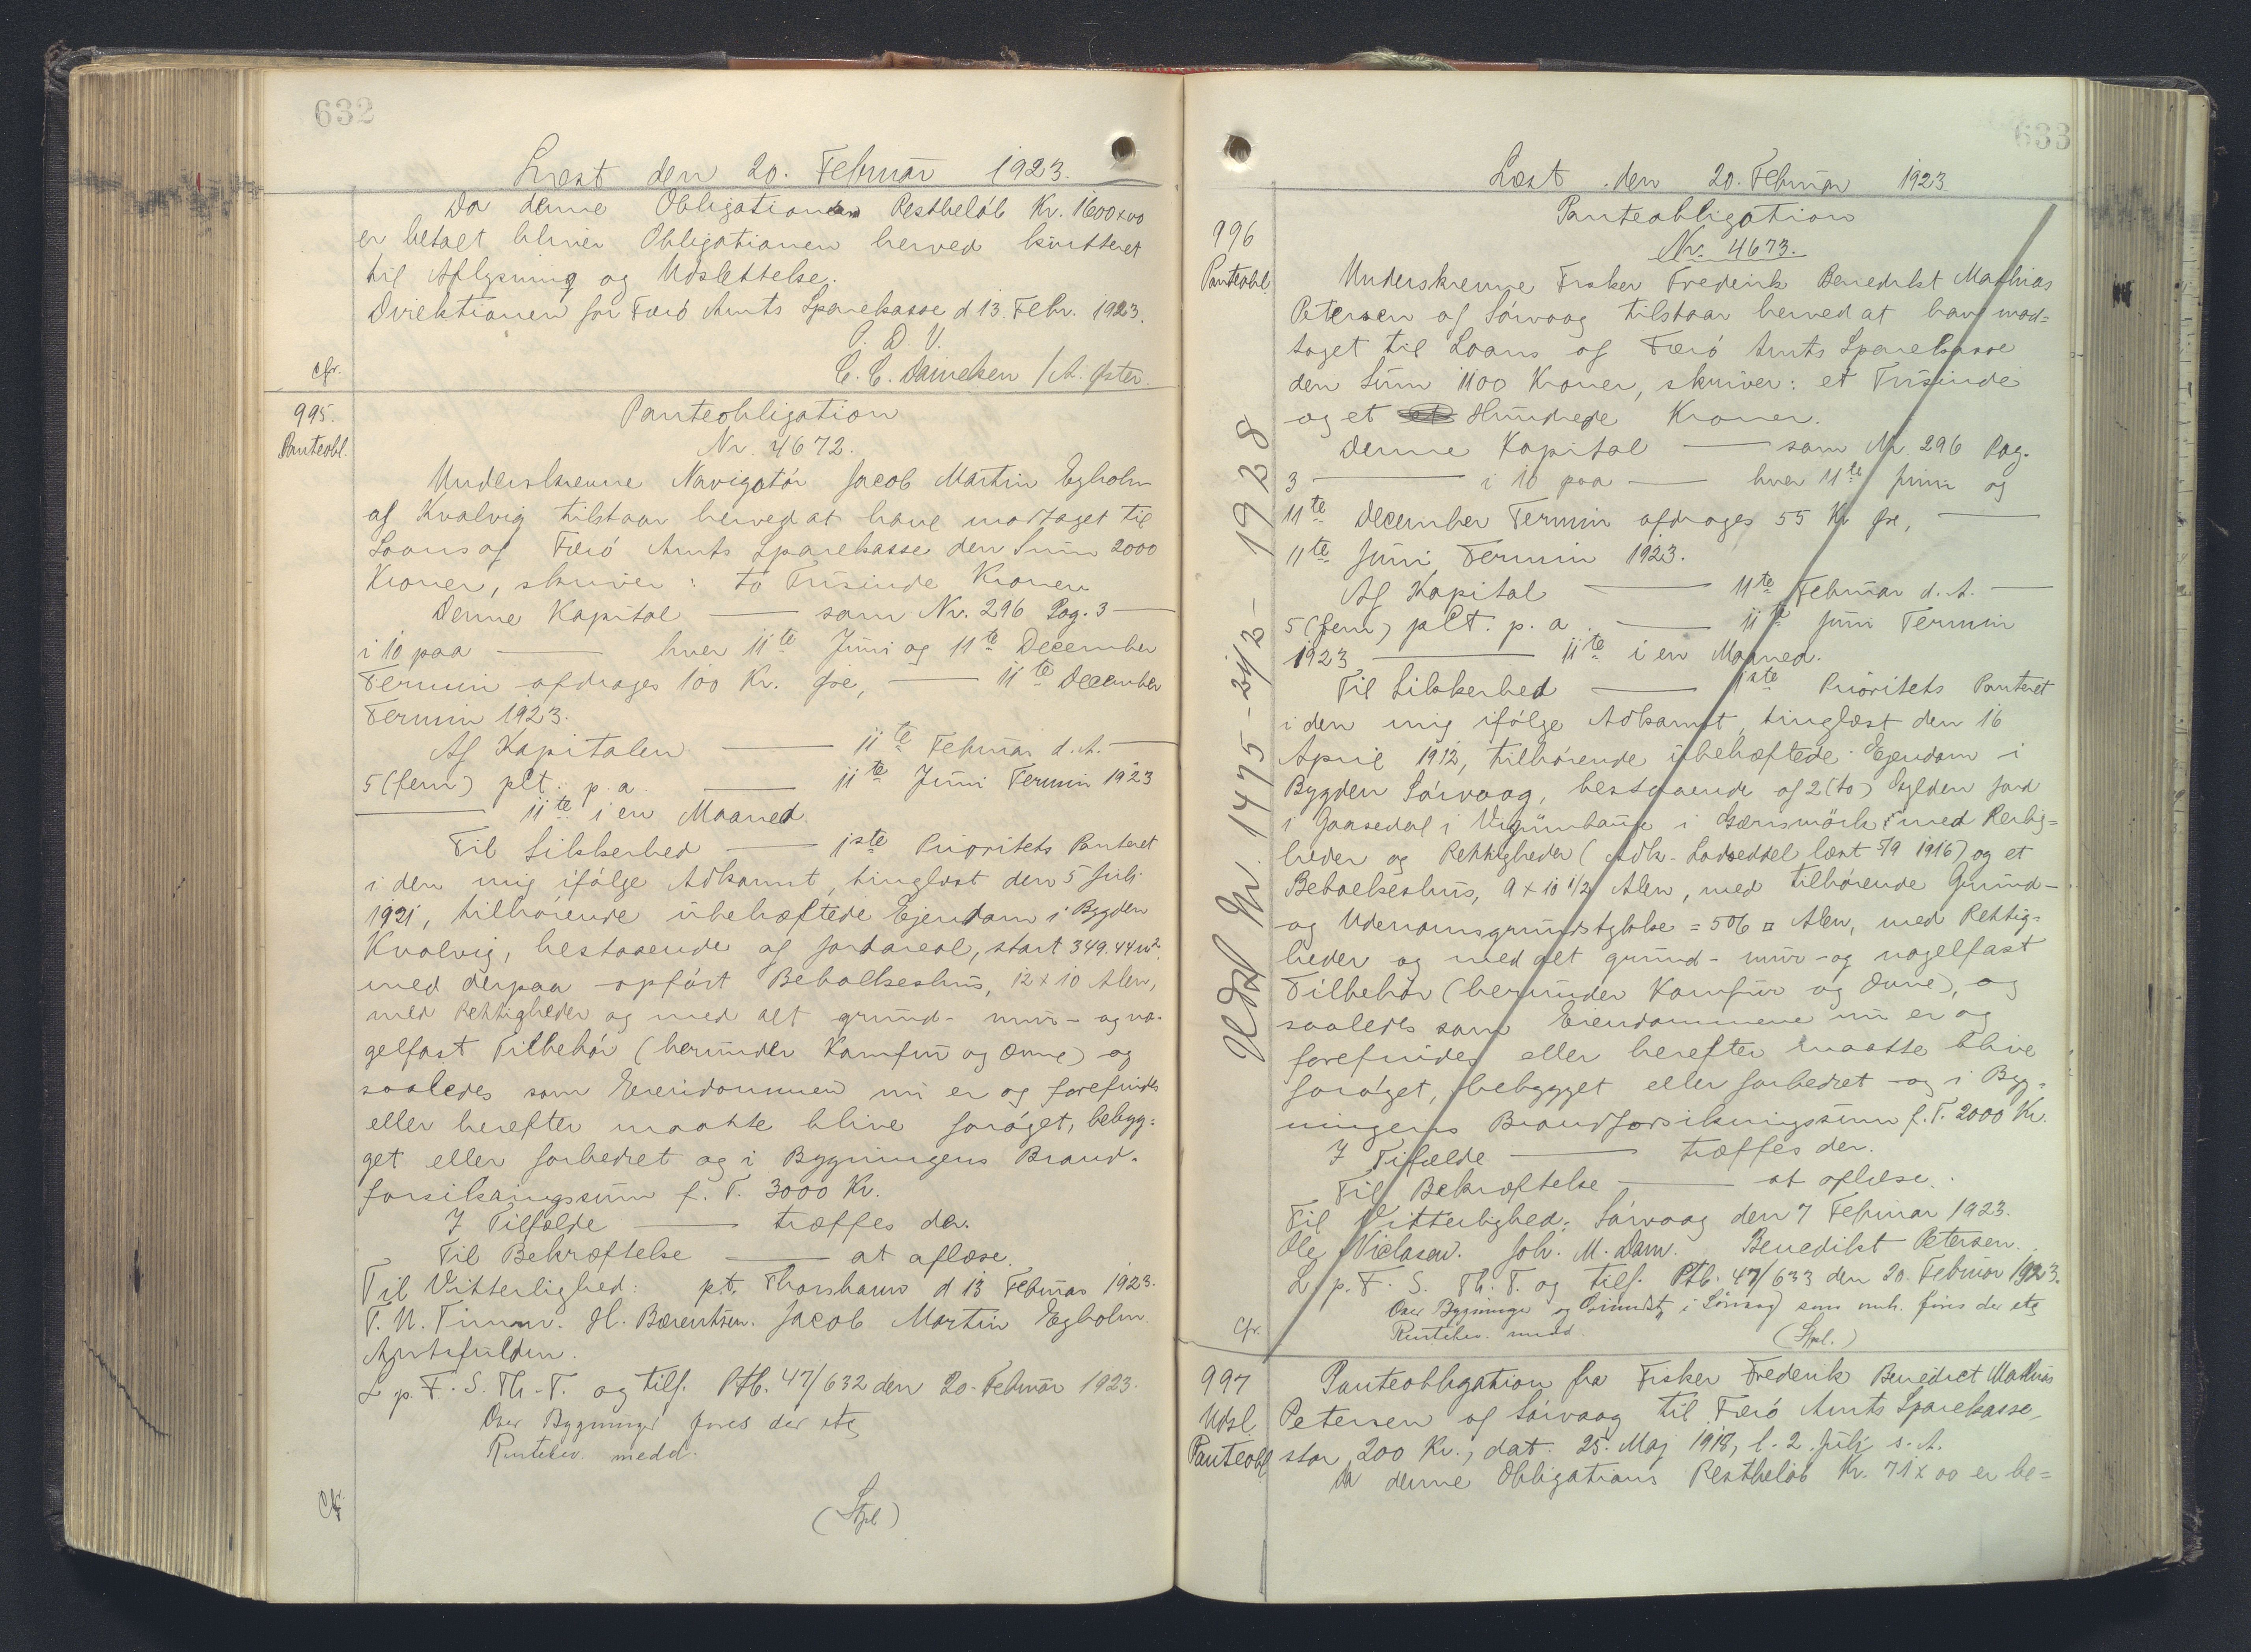 632
Læst den 20. Februar 1923.
Da denne Obligations Restbeløb Kr. 1600x00
er betalt bliver Obligationen herved kvitteret
til Aflysning og Udslettelse.
Direktionen for Færö Amts Sparekasse d 13. Febr. 1923.
P. D. V.
C. C. Danielsen / A. Øster.
cfr.
995.
Panteobl.
Panteobligation
Nr. 4672.
Underskrevne Navigatör Jacob Martin Egholm
af Kvalvig tilstaar herved at have modtaget til
Laans af Færö Amts Sparekasse den Sum 2000
Kroner, skriver: to Tusinde Kroner
Denne Kapital — som Nr. 296 Pag. 3 —
i 10 paa — hver 11te Juni og 11te December
Termin afdrages 100 Kr. Øre, — 11te December
Termin 1923.
Af Kapitalen — 11te Februar d. A. —
5 (fem) pCt. p. a. — 11te Juni Termin 1923
— 11te i en Maaned.
Til Sikkerhed — 1ste Prioritets Panteret
i den mig ifölge Adkomst, tinglæst den 5 Juli
1921, tilhörende übehæftede Ejendom i Bygden
Kvalvig, bestaaende af Jordareal, stort 349.44 m²
med derpaa opfört Beboelseshus, 12 x 10 Alen,
med Rettigheder og med alt grund- mur- og na-
gelfast Tilbehör (herunder Komfur og Ovne) og
saaledes som Eiendommen nu er og forefindes
eller herefter maatte blive foröget, bebyg=
get eller forbedret og i Bygningens Brand-
forsikringssum f. T. 3000 Kr.
I Tilfælde — træffes der.
Til Bekræftelse — at aflæse.
Til Vitterlighed: pt. Thorshavn d 13 Februar 1923.
T. N. Timm. H. Bærentsen. Jacob Martin Egholm.
Amtsfuldm.
L. p. F. S. Th. T. og tilf. Ptb. 47/632 den 20. Februar 1923.
Over Bygninger föres der etc
Rentebev. medd.
(Stpl.)
Cfr.
633
Læst den 20. Februar 1923
996
Panteobl.
Panteobligation
Nr. 4673.
Underskrevne Fisker Frederik Benedikt Mathias
Petersen af Sörvaag tilstaar herved at have mod=
taget til Laans af Færö Amts Sparekasse
den Sum 1100 Kroner, skriver: et Tusinde
og et Hundrede Kroner.
Denne Kapital — som Nr. 296 Pag.
3 — i 10 paa — hver 11te Juni og
11te December Termin afdrages 55 Kr Øre, —
11te Juni Termin 1923.
Af Kapital — 11te Februar d. A. —
5 (fem) pCt. p. a. — 11te Juni Termin
1923 — 11te i en Maaned.
Til Sikkerhed — 1ste Prioritets Panteret
i den mig ifölge Adkomst, tinglæst den 16
April 1912, tilhörende übehæftede Ejendom i
Bygden Sörvaag, bestaaende af 2 (to) Gylden Jord
i Jansedal i i med Herlig=
heder og Rettigheder (Adk. Lodseddel læst 5/9 1916) og et
Beboelseshus, 9 x 10 1/2 Alen, med tilhörende Grund-
og Udenomsgrundstykke = 506 □ Alen, med Rettig=
heder og med alt grund- mur- og nagelfast
Tilbehör (herunder Komfur og Ovne), og
saaledes som Eiendommene nu er og
forefindes eller herefter maatte blive
foröget, bebygget eller forbedret og i Byg=
ningens Brandforsikringssum f. T. 2000 Kr.
I Tilfælde — træffes der.
Til Bekræftelse — at aflæse.
Til Vitterlighed: Sörvaag den 7 Februar 1923.
Ole Niclasen. Joh. M. Dam. Benedikt Petersen.
L. p. F. S. Th. T. og tilf. Ptb. 47/633 den 20. Februar 1923.
Over Bygninger og Grundst. i Sörvaag som omh. föres der etc
Rentebev. medd. (Stpl.)
Cfr.
Udsl Nr. 1475 - 21/2 - 1928
997
Udsl.
Panteobl
Panteobligation fra Fisker Frederik Benedict Mathias
Petersen af Sörvaag til Færö Amts Sparekasse,
stor 200 Kr., dat. 25. Maj 1918, l. 2. Juli s. A.
Da denne Obligations Restbeløb Kr. 71x00 er be=